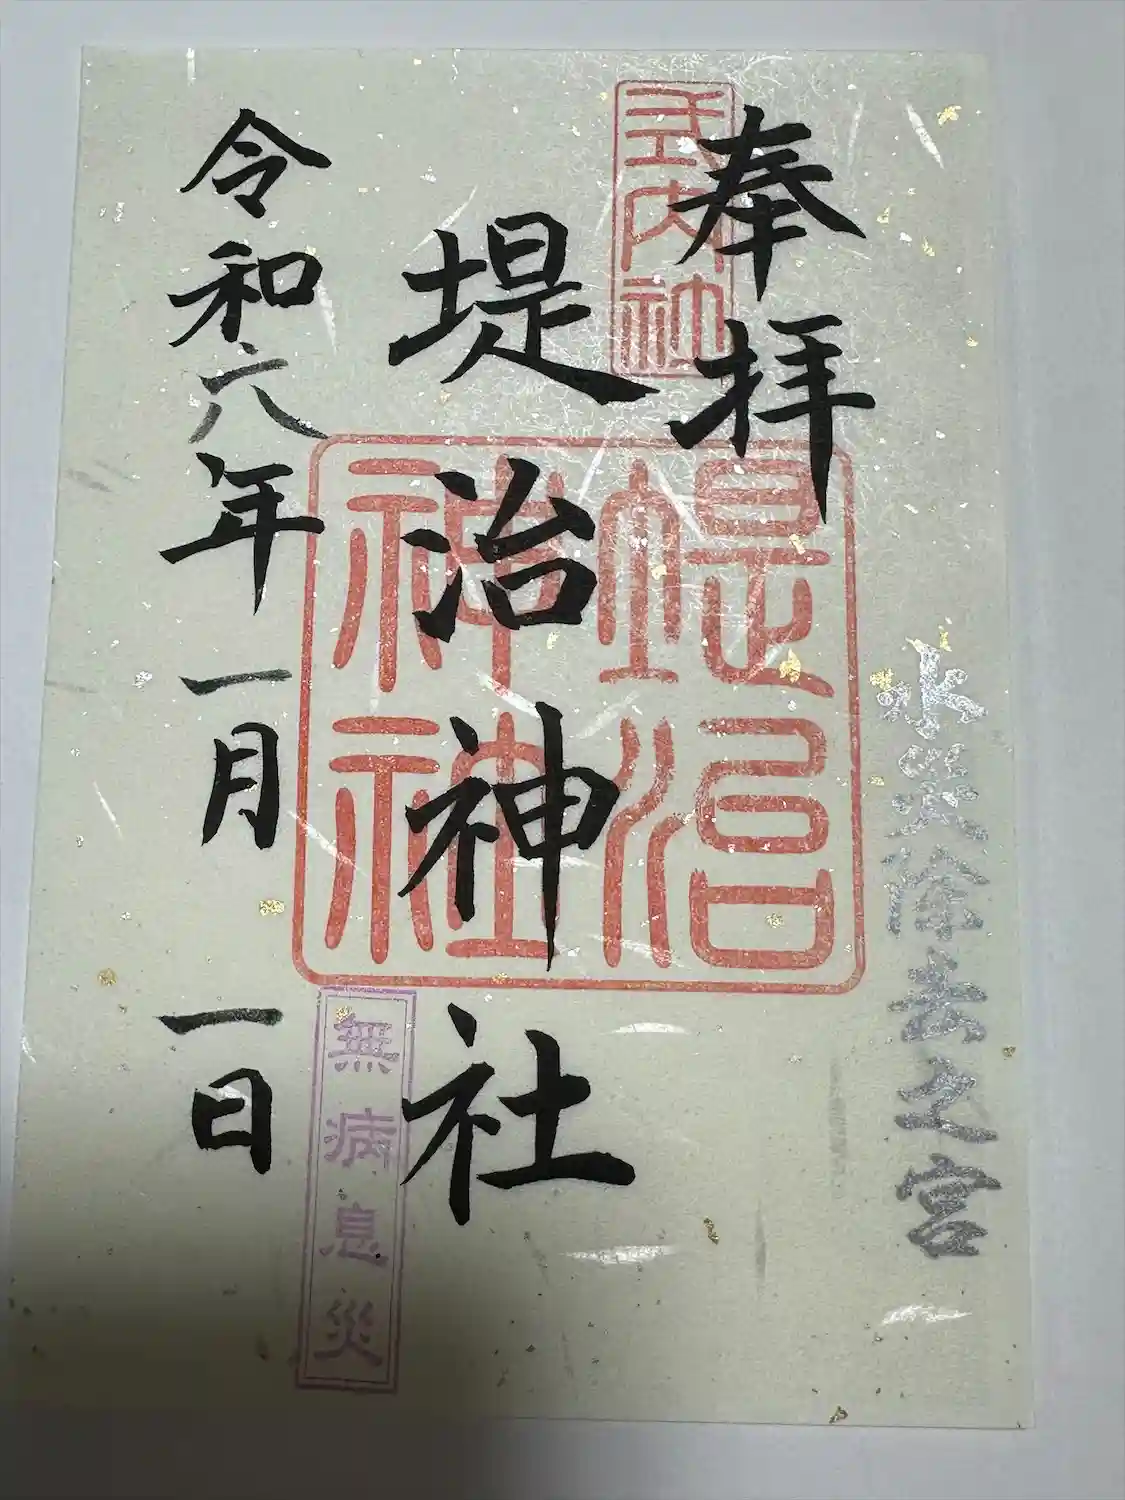 水災除去之宮
奉拝
式内社
堤治神社
堤治神社
無病息災
令和六年一月一日